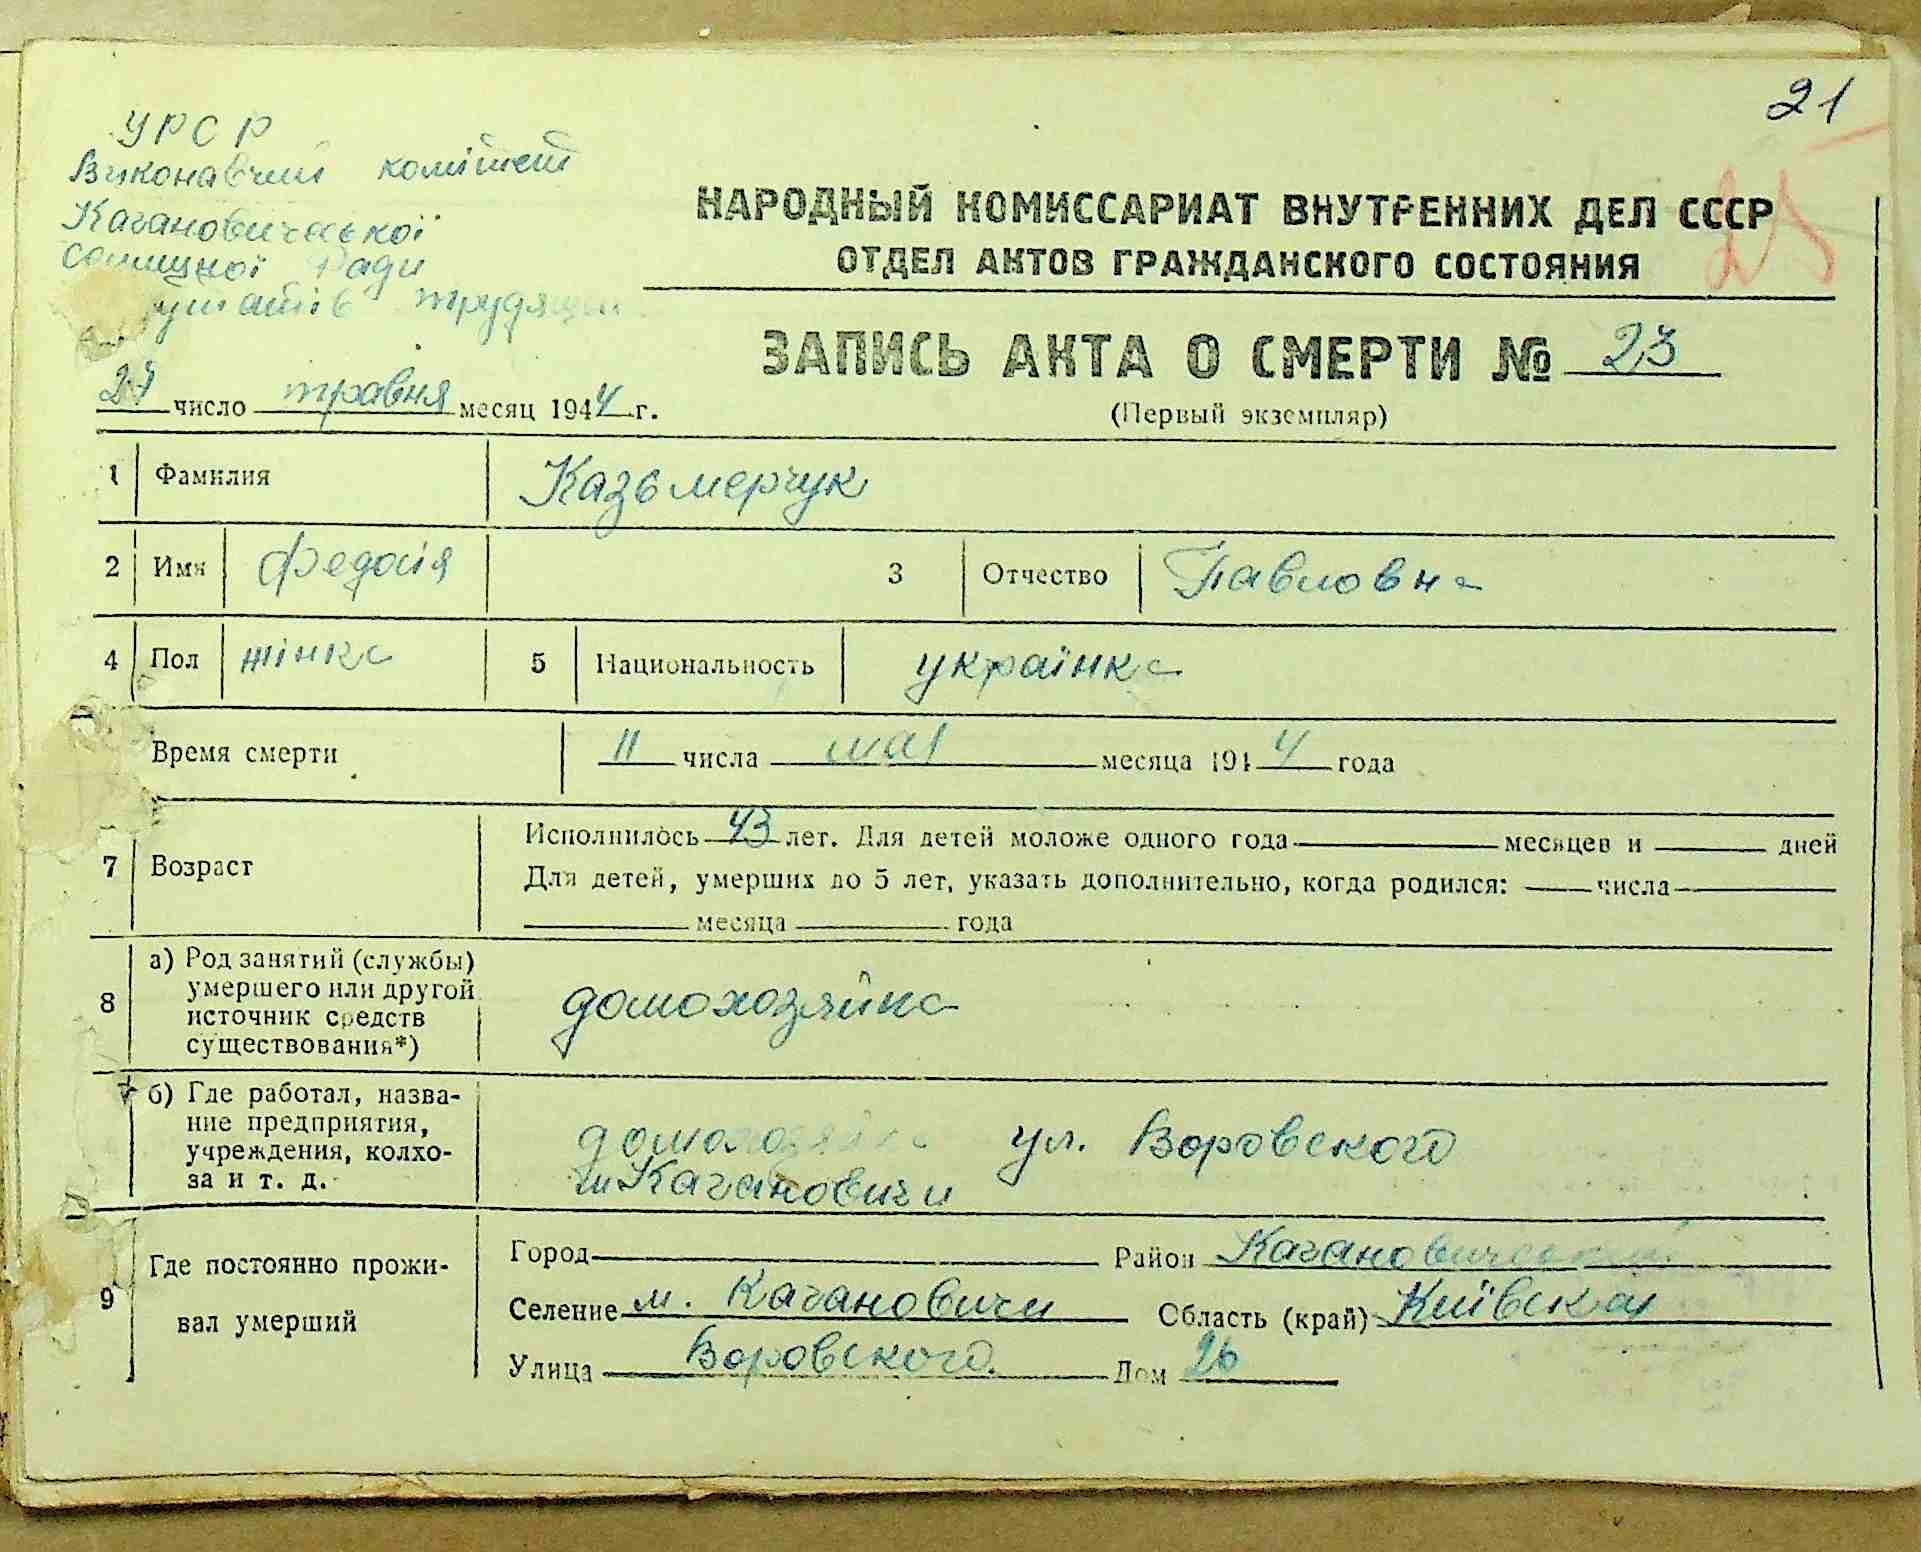 21
УРСР
Виконавчий комітет
Кагановичської
селищної Ради
трудящ
25
НАРОДНЫЙ КОМИССАРИАТ ВНУТРЕННИХ ДЕЛ СССР
ОТДЕЛ АКТОВ ГРАЖДАНСКОГО СОСТОЯНИЯ
ЗАПИСЬ АКТА О СМЕРТИ № 23
(Первый экземпляр)
число травня месяц 1944 г.
1 Фамилия Казьмерчук
2 Имя Федосія 3 Отчество Павловна
4 Пол жінка 5 Национальность українка
Время смерти 11 числа мая месяца 1944 года
7 Возраст Исполнилось 43 лет. Для детей моложе одного года месяцев и дней
Для детей, умерших до 5 лет, указать дополнительно, когда родился: числа
месяца года
8 а) Род занятий (службы)
умершего или другой
источник средств
существования*)
домохозяйка
б) Где работал, назва-
ние предприятия,
учреждения, колхо-
за и т. д.
домохозяйка ул. Воровского
м Кагановичи
9 Где постоянно прожи-
вал умерший
Город Район Кагановичський
Селение м. Кагановичи Область (край) Київская
Улица Воровского. Дом 26